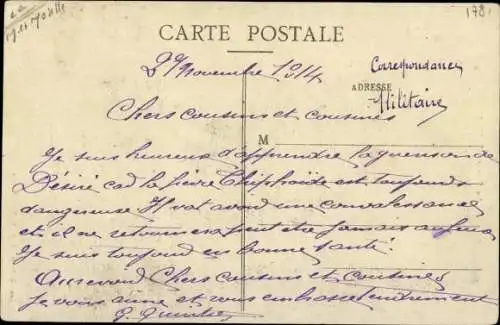 178
CARTE POSTALE
29 Novembre 1914
Correspondance
ADRESSE
Militaire
Chers cousins et cousines
M
Je suis heureux d'apprendre la guerison de
Désiré cad la fièvre Thiphoïde est toujours
dangereuse Il vat avoid une convalissance
et il ne retournera peut etre jamais au feux
Je suis toujoud en bonne santé
Aurevoid Chers cousins et cousines
Je vous aime et vous embrasse tendrement